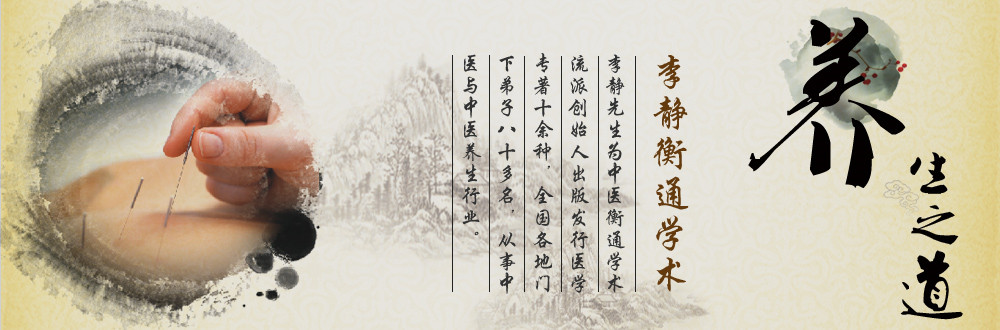 养
生之道
李静衡通学术
李静先生为中医衡通学术
流派创始人出版发行医学
专著十余种，全国各地门
下弟子八十多名，从事中
医与中医养生行业。